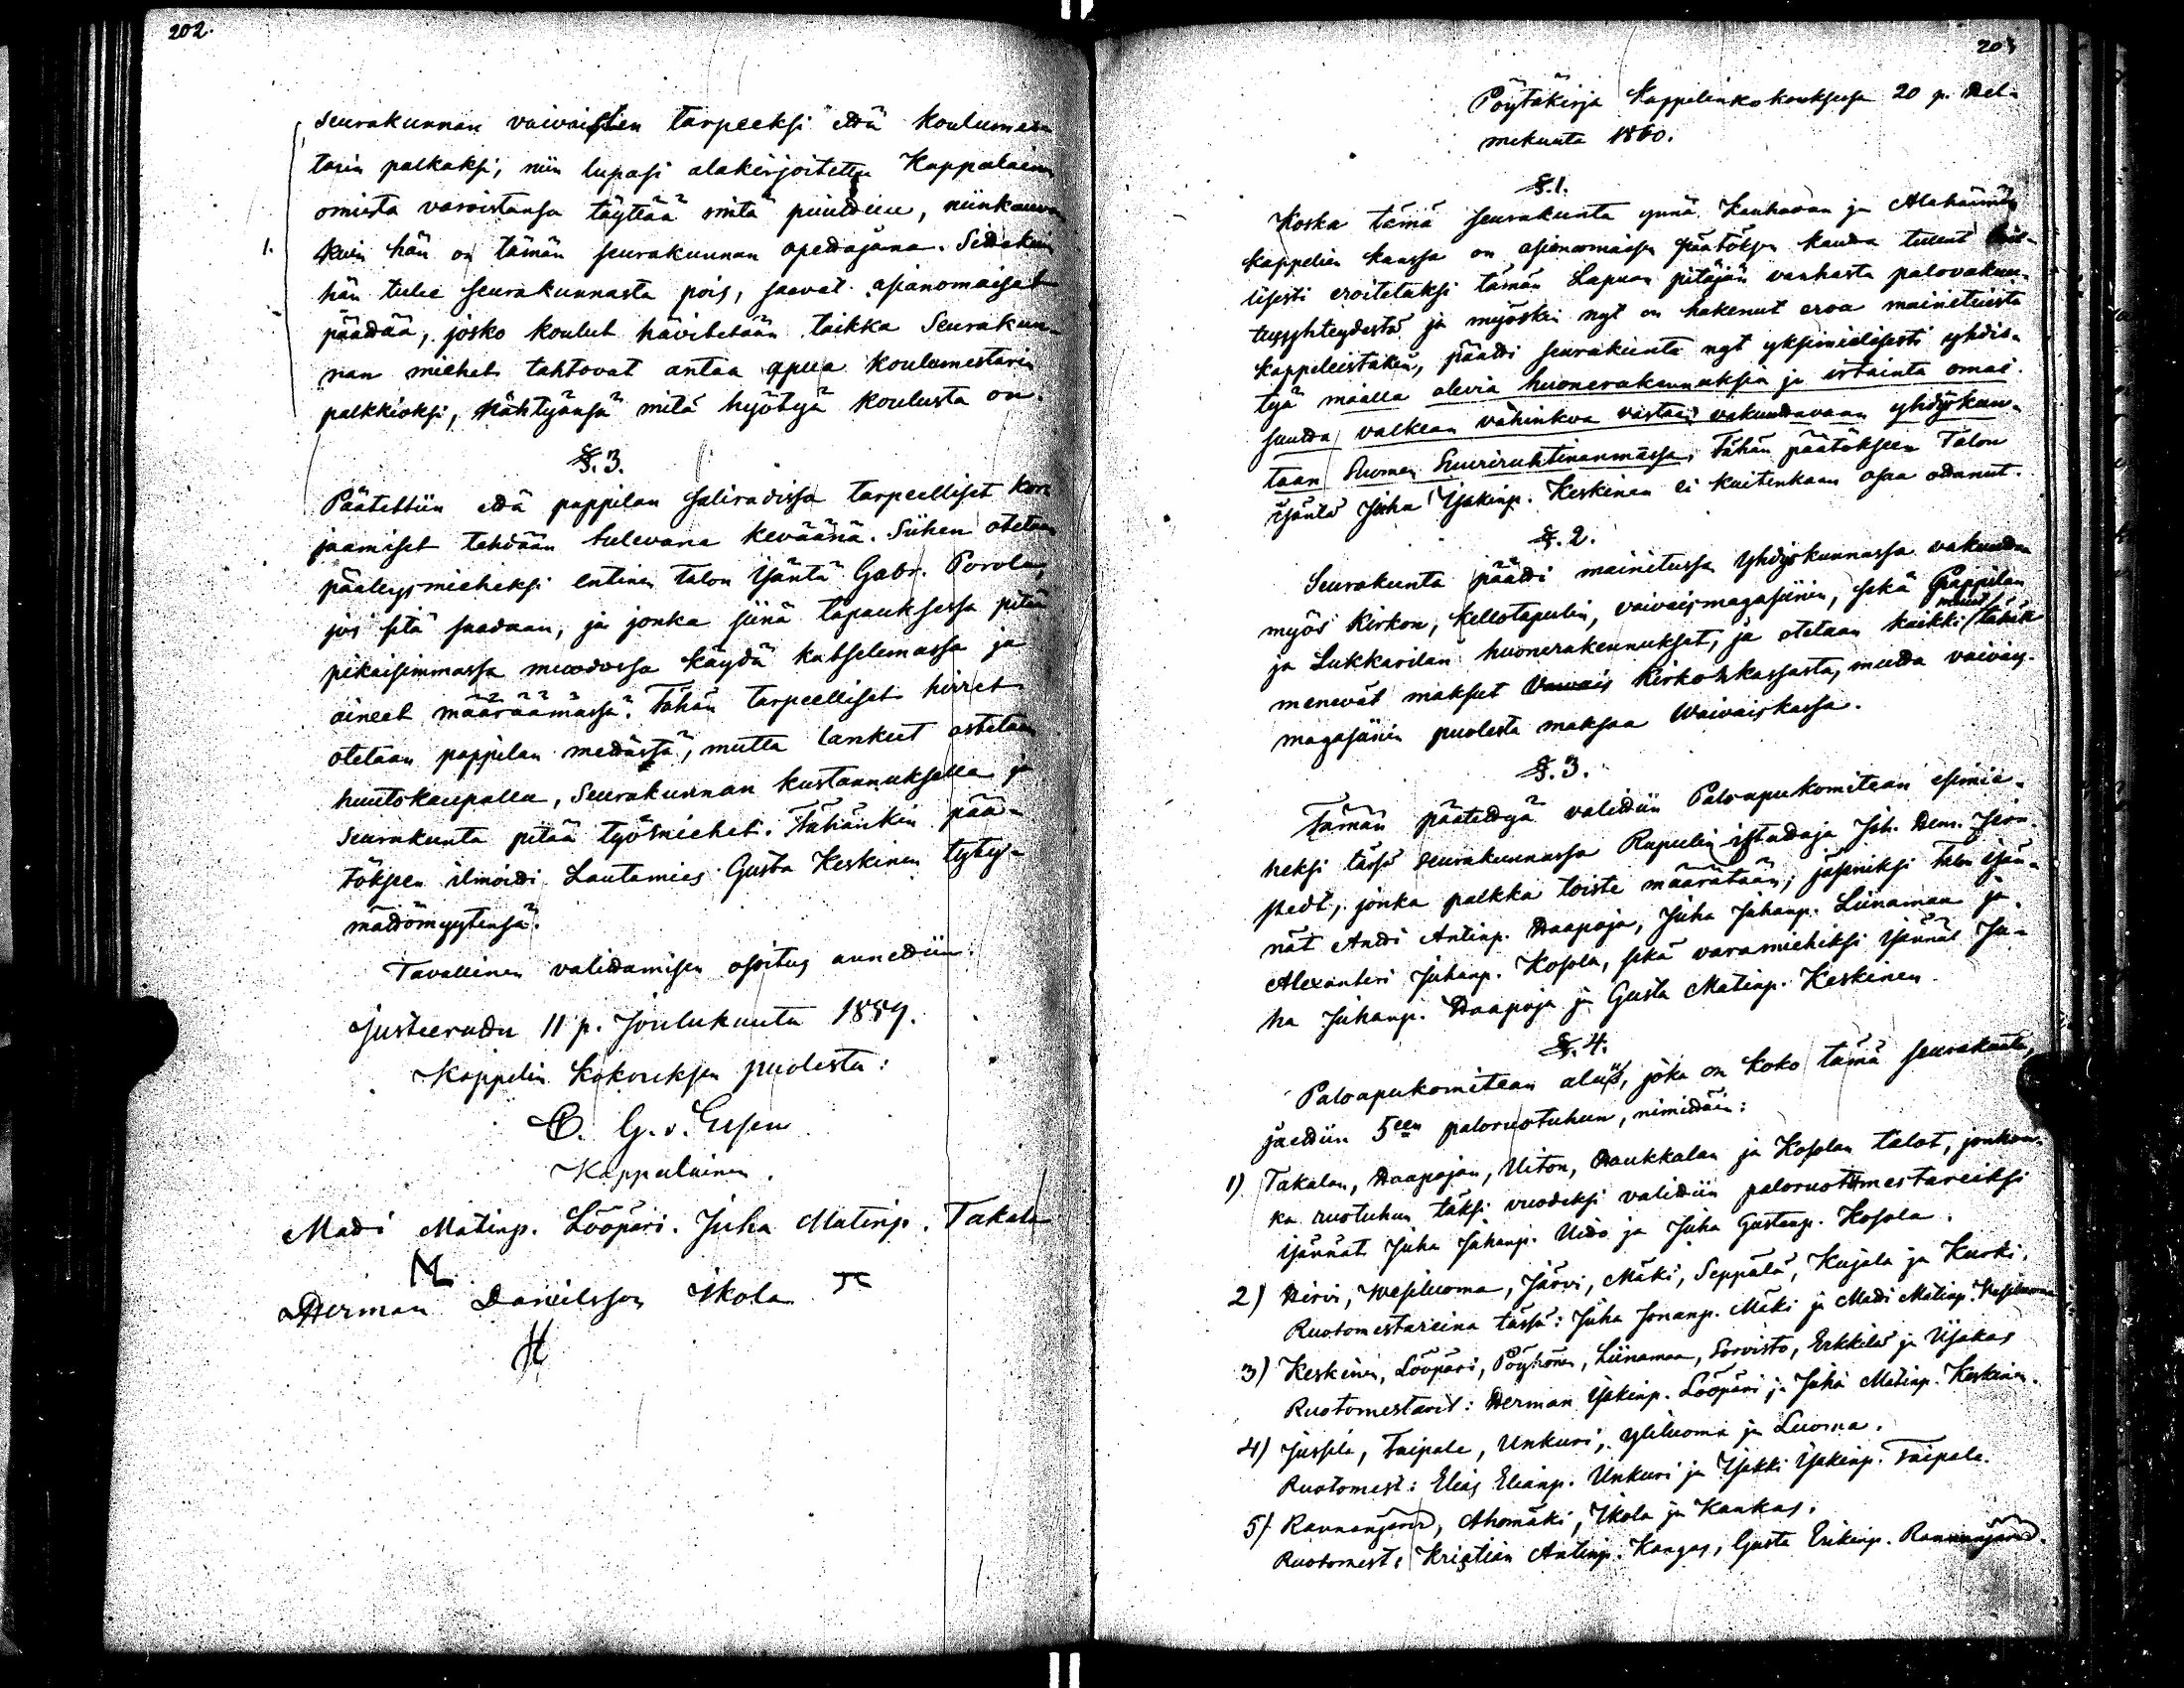 202.
seurakunnan vaivaisten tarpeeksi että koulumes-
tarin palkaksi, niin lupasi alakirjoitettu Kappalainen
omista varoistansa täyttää mitä puuttuu, niinkauvan
1.
kuin hän on tämän seurakunnan opettajana. Sittekuin
hän tulee seurakunnasta pois, saavat asianomaiset
päättää, josko koulut hävitetään taikka Seurakun-
nan miehet tahtovat antaa apua koulumestarin
palkkioksi, nähtyänsä mitä hyötyä koulusta on.
§.3.
Päätettiin että pappilan saliradissa tarpeelliset kor-
jaamiset tehdään tulevana keväänä. Siihen otetaan
päälysmieheksi entinen talon isäntä Gabr. Porola,
jos sitä saadaan, ja jonka siinä tapauksessa pitää
pikaisimmassa muodossa käydä katselemassa ja
aineet määräämässä. Tähän tarpeelliset hirret
otetaan pappilan mettästä, mutta lankut ostetaan
huutokaupalla, Seurakunnan kustannuksella ja
Seurakunta pitää työmiehet. Tähänkin pää-
tökseen ilmoitti Lautamies Gusta Keskinen tyty-
mättömyytensä.
Tavallinen valittamisen osoitus annettiin.
Justeerattu 11 p. Joulukuuta 1859.
Kappelin Kokouksen puolesta:
C. G. v. Essen
Kappalainen.
Matti Matinp. Lööpäri. Juha Matinp. Takala
Herman Danielsson Ikola
H
203
Pöytäkirja Kappelinkokouksessa 20 p. Hel-
mikuuta 1860.
§.1.
Koska tämä seurakunta ynnä Kauhavan ja Alahärmän
kappelien kanssa on asianomaisen päätöksen kautta tullut
lisesti eroitetuksi tämän Lapuan pitäjän vanhasta palovakuu-
tusyhteydestä ja myöskin nyt on hakenut eroa mainituista
kappeleistakin, päätti seurakunta nyt yksimielisesti yhdis-
tyä maalla olevia huonerakennuksia ja irtainta omai-
suutta valkean vahinkoa vastaan vakuuttavaan yhdyskun-
taan Suomen Suuriruhtinanmaassa. Tähän päätökseen Talon
isäntä Juha Isakinp. Keskinen ei kuitenkaan osaa ottanut.
§.2.
Seurakunta päätti mainitussa yhdyskunnassa vakuuttaa
myös Kirkon, Kellotapulin, vaivaismagasiinin, sekä Pappilan
ja Lukkarilan huonerakennukset, ja otetaan kaikki muut tähän
menevät maksut Vaivais Kirkonkassasta, mutta vaivais-
magasiinin puolesta maksaa Waivaiskassa.
§.3.
Tämän päätettyä valittiin Paloapukomitean esimie-
heksi tässä seurakunnassa Rupulin istuttaja Joh. Hem.
stedt, jonka palkka toiste määrätään; jäseniksi Talon isän-
nät Antti Antinp. Haapoja, Juha Juhanp. Liinamaa ja
Alexanteri Juhanp. Kosola, sekä varamiehiksi isännät Ju-
ha Juhanp. Haapoja ja Gusta Matinp. Keskinen.
§.4.
Paloapukomitean aluus, joka on koko tämä seurakunta,
jaettiin 5een paloruotuhun, nimittäin:
1) Takalan, Haapojan, Uiton, Haukkalan ja Kosolan talot, jonkun-
ka ruotuhun täksi vuodeksi valittiin paloruotumestareiksi
isännät Juha Juhanp. Uito ja Juha Gustanp. Kosola.
2) Hirvi, Wesiluoma, Järvi, Mäki, Seppälä, Kujala ja Kurki.
Ruotomestareina tässä: Juha Jonanp. Mäki ja Matti Matinp. Wesiluoma
3) Keskinen, Lööpäri, Pöyhönen, Liinamaa, Sorvisto, Erkkilä ja Iisakas
Ruotomestarit: Herman Isakinp. Lööpäri ja Juha Matinp. Keskinen.
4) Jussila, Taipale, Unkuri, Yliluoma ja Luoma.
Ruotomest: Elias Elianp. Unkuri ja Isakki Isakinp. Taipale.
5) Rannanjärvi, Ahomäki, Ikola ja Kankas.
Ruotomest: Kristian Antinp. Kangas, Gusta Erikinp. Rannanjärvi.